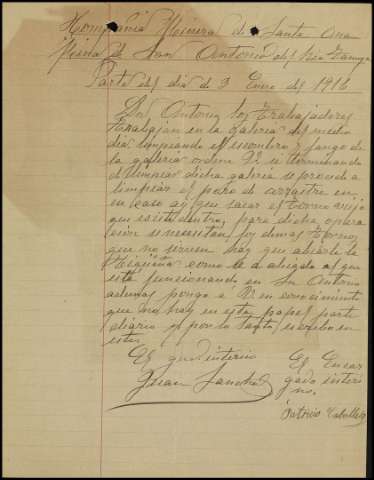 Compañia Minera de Santa Ana
Mina de San Antonio del Rio
Parte del dia de 3 Enero del 1916
Sn Antonio los trabajadores
trabajan en la galeria del medio
dia limpiando el escombro y fango de
la galeria ordene V. si terminando
de limpiar dicha galeria se procede a
limpiar el pozo de arrastre en
en caso ay que sacar el torno viejo
que esta dentro, para dicha opera
cion se necesitan los demas tornos
que no sirven hay que abiarlo la
como se a abiado al que
esta funcionando en Sn Antonio
ademas pongo a V. en conocimiento
que no hay en esta papel parte
diario y por lo tanto escribo en
este
El guarda interino
Juan Sanchez
El Encar
gado interi
no.
Antonio Caballero